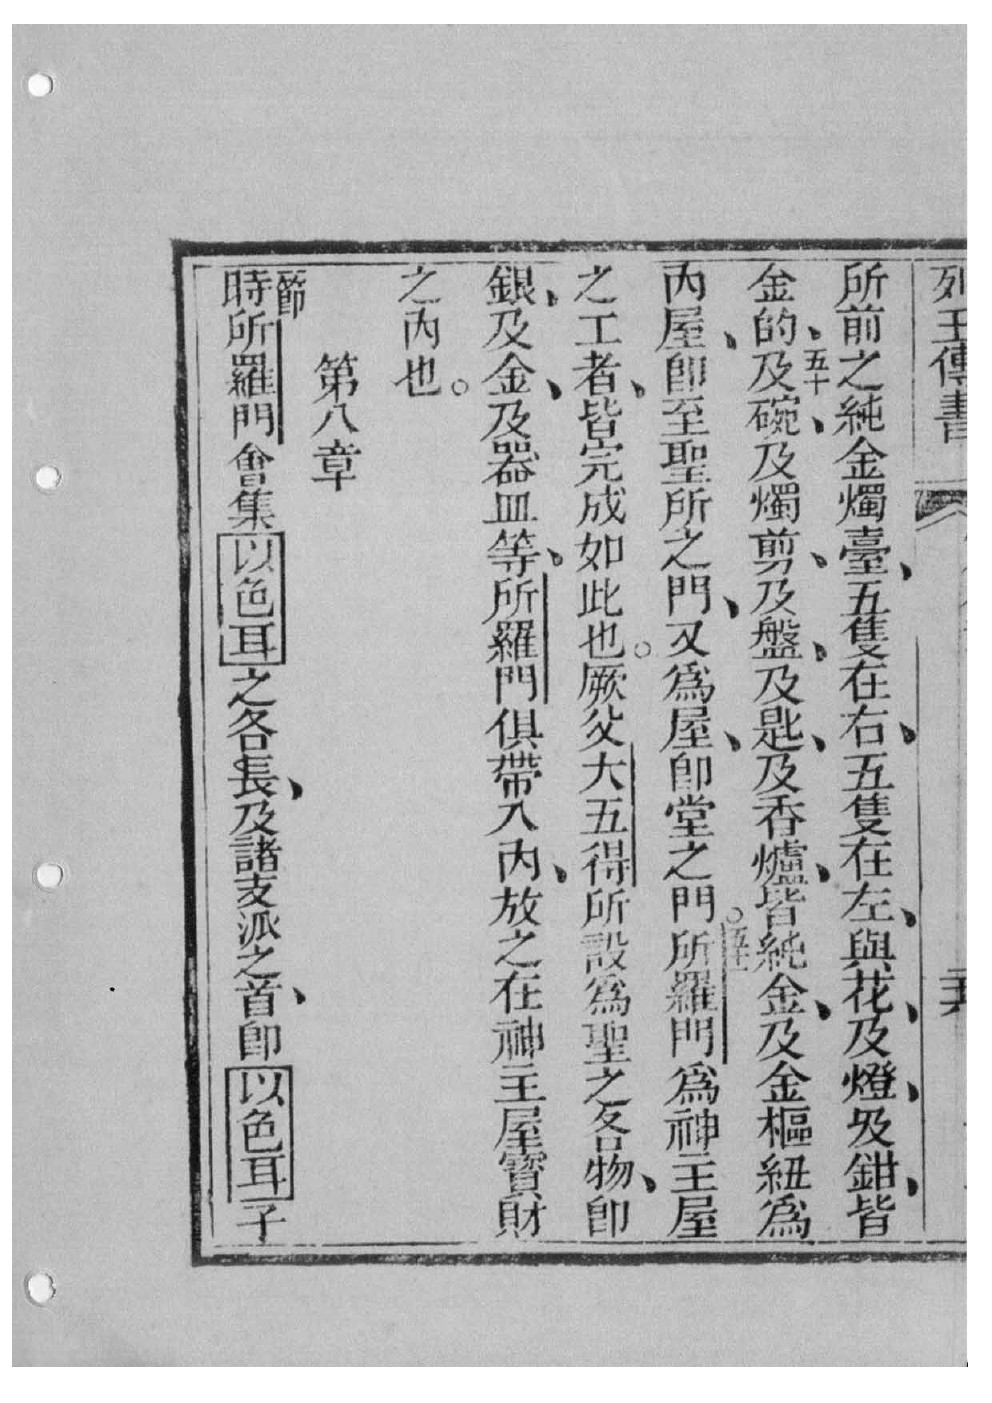 列王傳書
所前之純金燭臺、五隻在右、五隻在左、與花、及燈、及鉗、皆
金的、五十及碗、及燭剪、及盤、及匙、及香爐、皆純金、及金樞紐爲
內屋、卽至聖所之門、又爲屋、卽堂之門。五十一所羅門爲神主屋
之工者、皆完成如此也。厥父大五得所設爲聖之各物、卽
銀、及金、及器皿等、所羅門俱帶入內、放之在神主屋寶財
之內也。
第八章
節時所羅門會集以色耳之各長、及諸支派之首、卽以色耳子